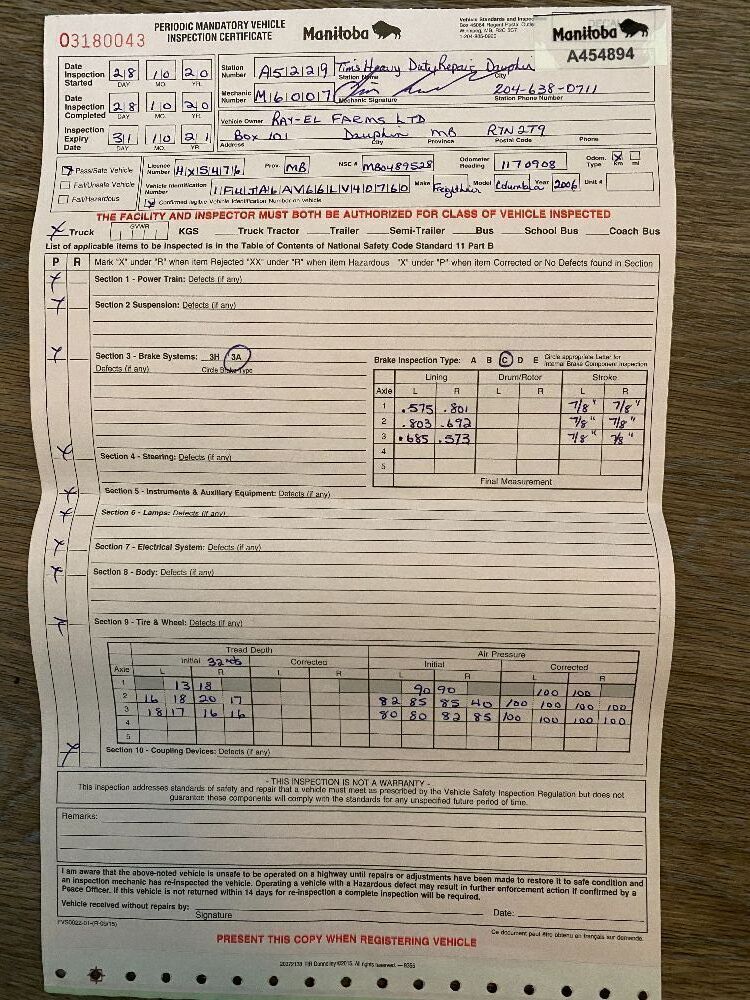 03180043
PERIODIC MANDATORY VEHICLE
INSPECTION CERTIFICATE
Manitoba
Vehicle Standards and
Manitoba
A454894
Date Inspection Started 28 10 20
DAY MO. YR.
Station Number A5229 Tim's Heavy Duty Repair Dauphin
Station Name City
Mechanic Number M6007 Mechanic Signature
204-638-0711
Station Phone Number
Date Inspection Completed 28 10 20
DAY MO. YR.
Vehicle Owner RAY-EL FARMS LTD
Inspection Expiry Date 31 10 21
DAY MO. YR.
Box 101 Dauphin MB R7N 2T9
Address City Province Postal Code Phone
X Pass/Safe Vehicle
Fail/Unsafe Vehicle
Fail/Hazardous
Licence Number HX5476 Prov. MB NSC # MB0489528 Odometer Reading 1170908 Odom. Type X km mi
Vehicle Identification Number 1FUJA6AV66LV40760 Make Freightliner Model Columbia Year 2006 Unit #
Confirmed legible Vehicle Identification Number on vehicle
THE FACILITY AND INSPECTOR MUST BOTH BE AUTHORIZED FOR CLASS OF VEHICLE INSPECTED
X Truck GVWR KGS Truck Tractor Trailer Semi-Trailer Bus School Bus Coach Bus
List of applicable items to be inspected is in the Table of Contents of National Safety Code Standard 11 Part B
P R Mark "X" under "R" when item Rejected "XX" under "R" when item Hazardous "X" under "P" when item Corrected or No Defects found in Section
X Section 1 - Power Train: Defects (if any)
X Section 2 Suspension: Defects (if any)
X Section 3 - Brake Systems: 3H 3A
Defects (if any) Circle Brake Type
Brake Inspection Type: A B C D E Circle appropriate Letter for Internal Brake Component Inspection
Lining Drum/Rotor Stroke
Axle L R L R L R
1 .575 .801 7/8" 7/8"
2 .803 .692 7/8" 7/8"
3 .685 .573 7/8" 7/8"
4
5
Final Measurement
X Section 4 - Steering: Defects (if any)
X Section 5 - Instruments & Auxiliary Equipment: Defects (if any)
X Section 6 - Lamps: Defects (if any)
X Section 7 - Electrical System: Defects (if any)
X Section 8 - Body: Defects (if any)
X Section 9 - Tire & Wheel: Defects (if any)
Tread Depth Air Pressure
Initial 32nds Corrected Initial Corrected
Axle L R L R L R L R
1 13 18 90 90 100 100
2 16 18 20 17 82 85 85 40 100 100 100 100
3 18 17 16 16 80 80 82 85 100 100 100 100
4
5
X Section 10 - Coupling Devices: Defects (if any)
- THIS INSPECTION IS NOT A WARRANTY -
This inspection addresses standards of safety and repair that a vehicle must meet as prescribed by the Vehicle Safety Inspection Regulation but does not
guarantee these components will comply with the standards for any unspecified future period of time.
Remarks:
I am aware that the above-noted vehicle is unsafe to be operated on a highway until repairs or adjustments have been made to restore it to safe condition and
an inspection mechanic has re-inspected the vehicle. Operating a vehicle with a Hazardous defect may result in further enforcement action if confirmed by a
Peace Officer. If this vehicle is not returned within 14 days for re-inspection a complete inspection will be required.
Vehicle received without repairs by: Date:
Signature
Ce document peut être obtenu en français sur demande.
PRESENT THIS COPY WHEN REGISTERING VEHICLE